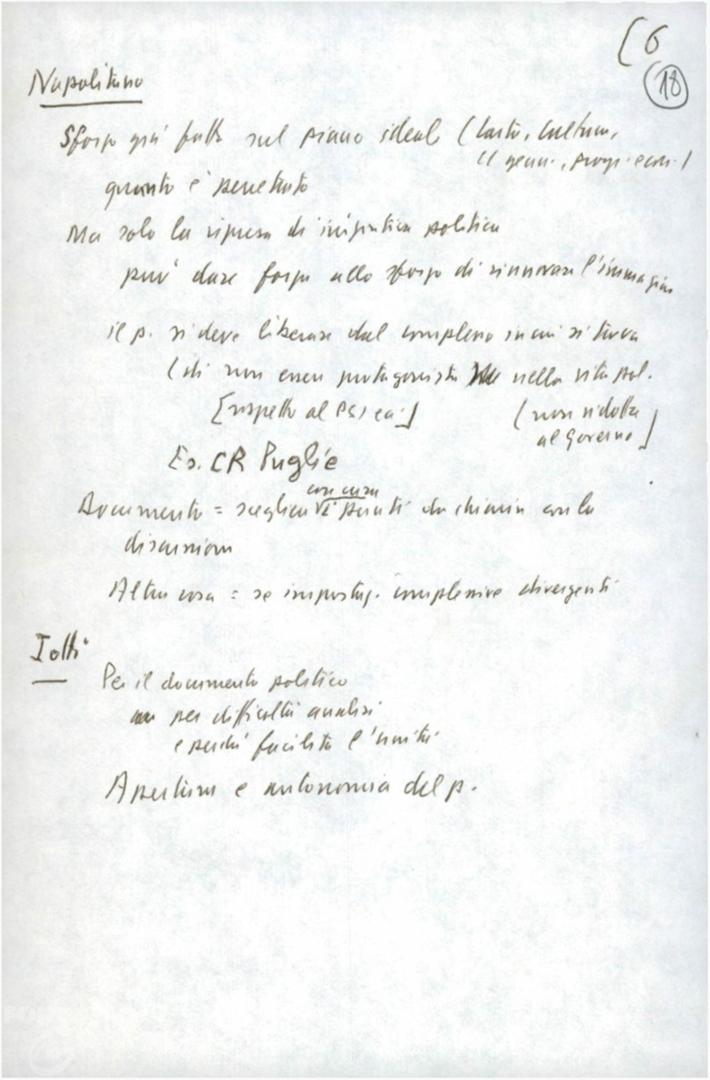 [6
18
Napolitano
Sforzo già fatto sul piano ideal (Carta, cultura,
quanto è penetrato
Ma solo la ripresa di iniziativa politica
può dare forza allo sforzo di rinnovare l'immagine
il p. si deve liberare dal complesso in cui si trova
(di non essere protagonista nella vita pol.
[rispetto al Psi ea.] (non ridotta
al Governo]
Es. CR Puglie
con cura
Documento = scegliere i punti da chiarire con la
discussione
Altra cosa = se impostaz. complessive divergenti
Iotti
Per il documento politico
per difficoltà analisi
e perché facilita l'unità
Apertura e autonomia del p.